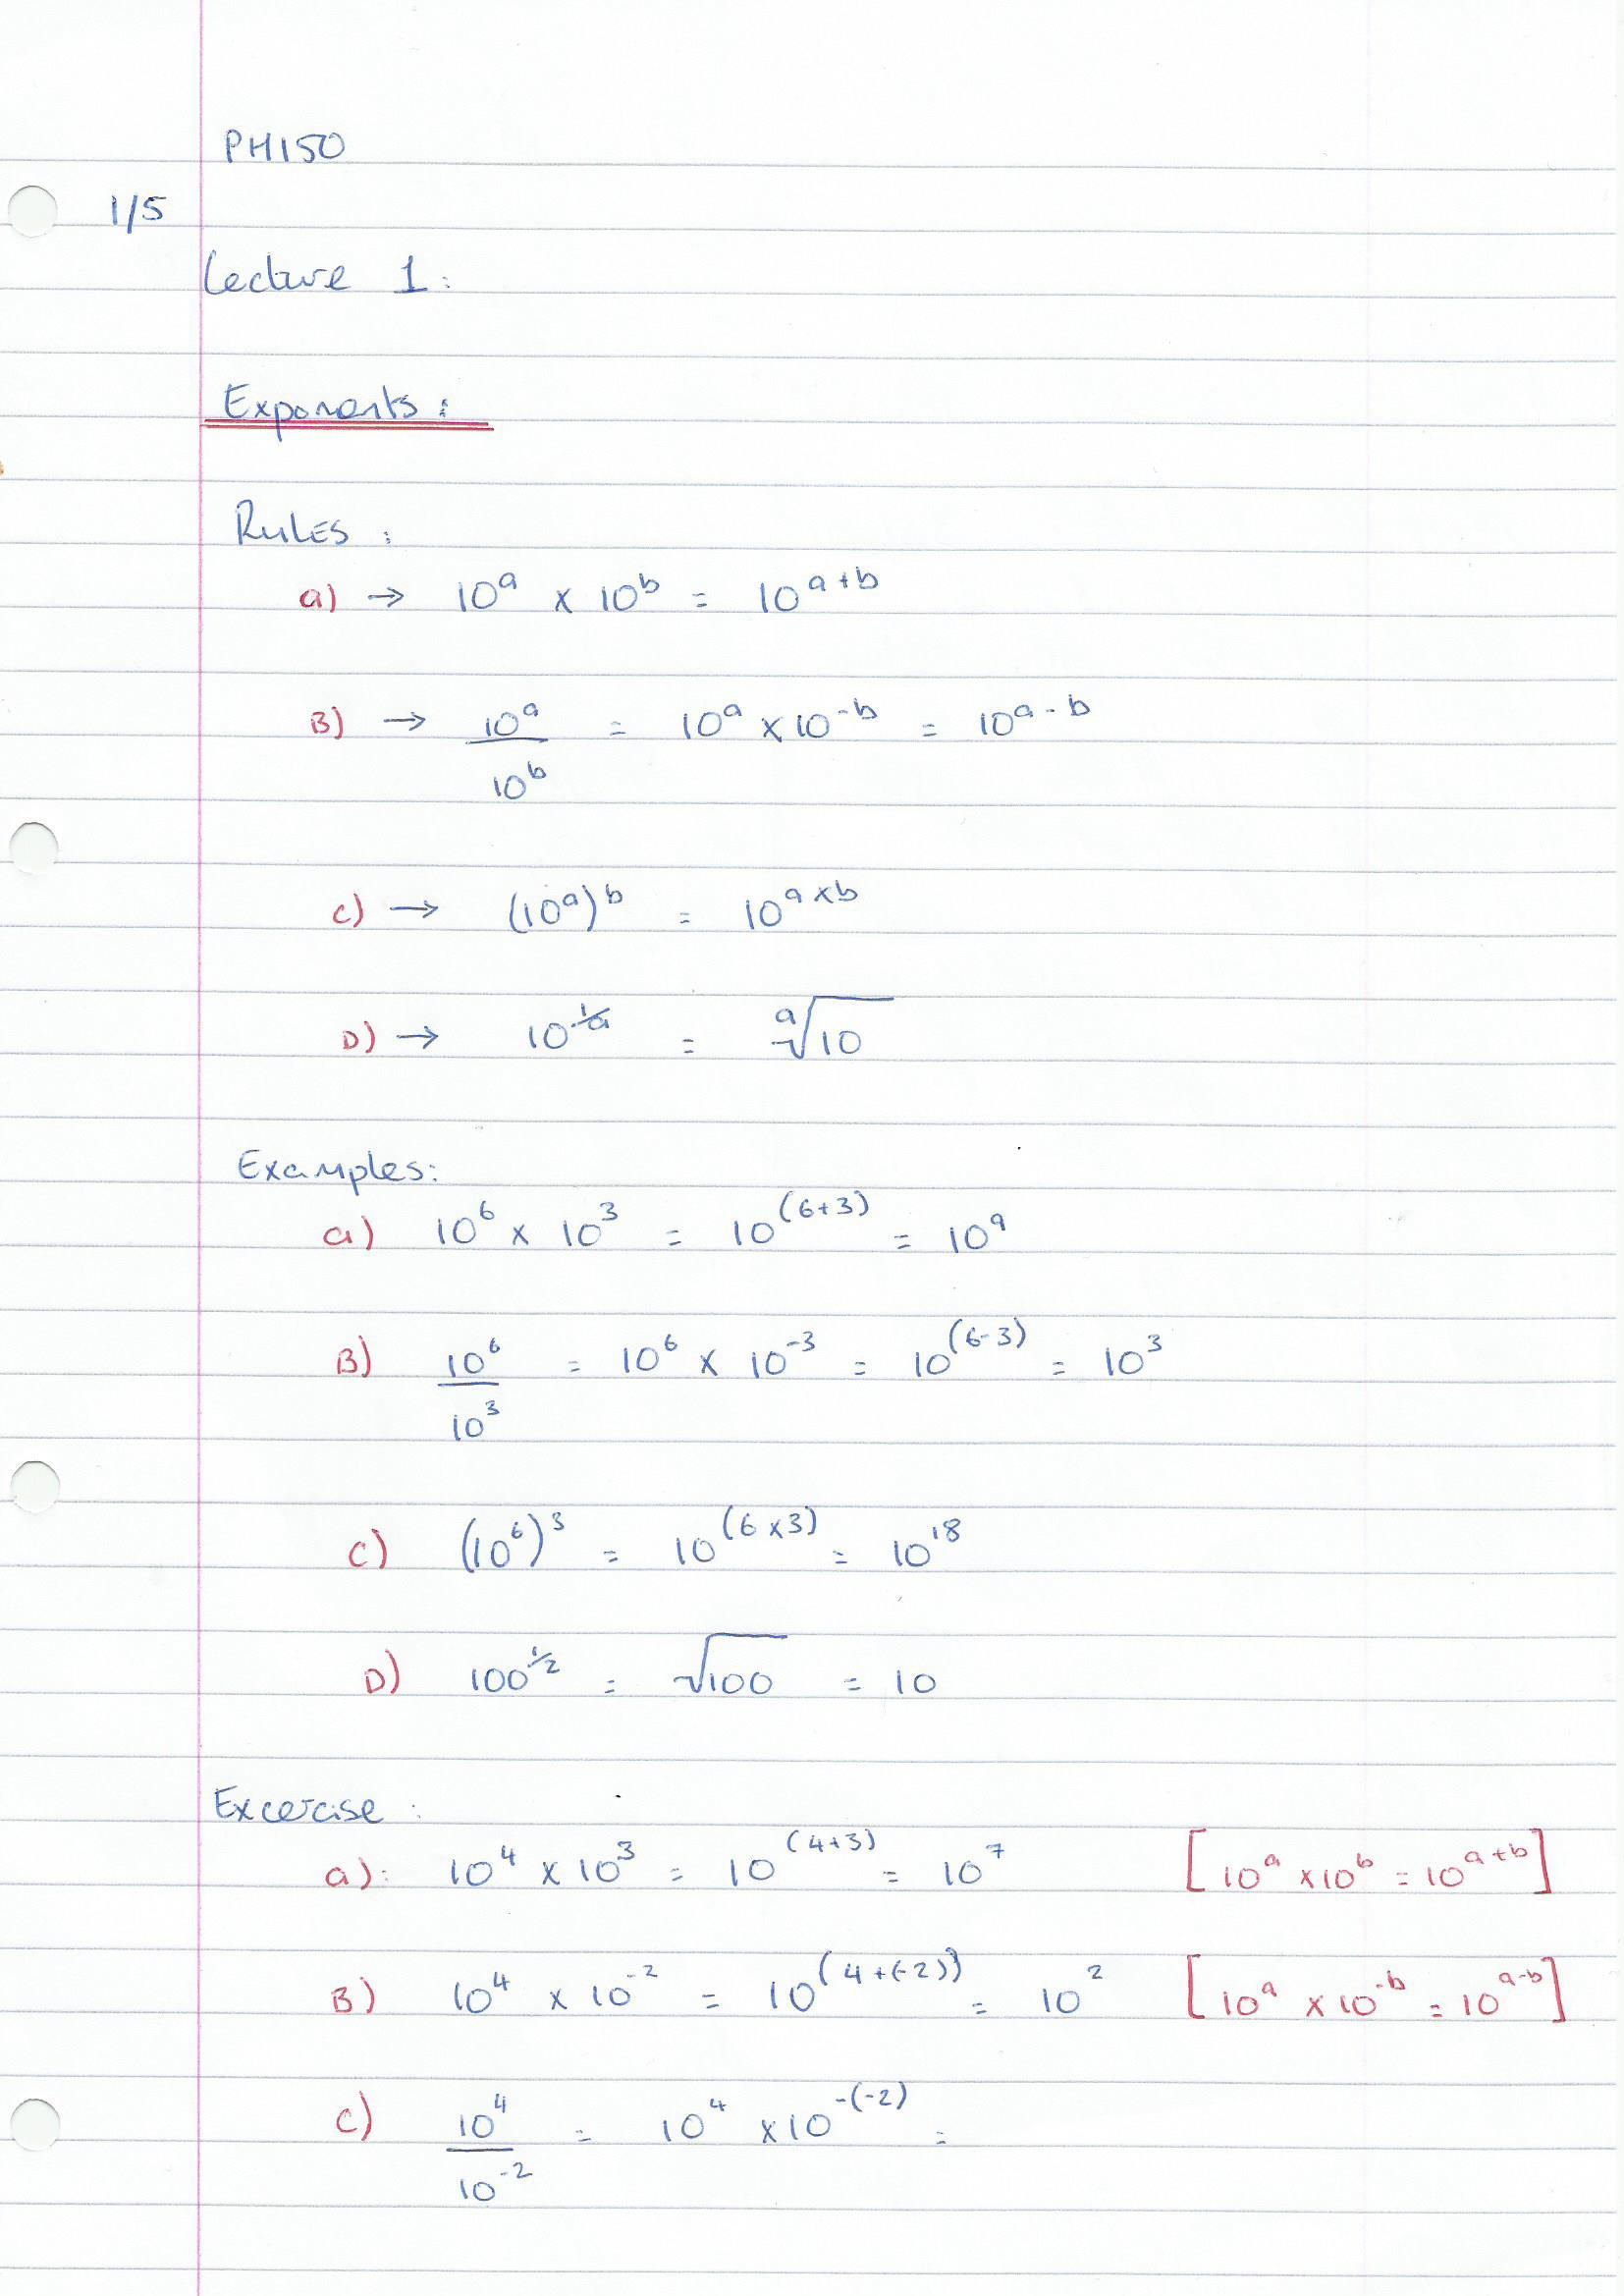 PH150
1/5
Lecture 1:
Exponents:
Rules:
a) → 10^a × 10^b = 10^(a+b)
B) → 10^a/10^b = 10^a × 10^-b = 10^(a-b)
c) → (10^a)^b = 10^(a×b)
D) → 10^(1/a) = ᵃ√10
Examples:
a) 10^6 × 10^3 = 10^(6+3) = 10^9
B) 10^6/10^3 = 10^6 × 10^-3 = 10^(6-3) = 10^3
c) (10^6)^3 = 10^(6×3) = 10^18
D) 100^(1/2) = √100 = 10
Excercise:
a): 10^4 × 10^3 = 10^(4+3) = 10^7 [10^a × 10^b = 10^(a+b)]
B) 10^4 × 10^-2 = 10^(4+(-2)) = 10^2 [10^a × 10^-b = 10^(a-b)]
c) 10^4/10^-2 = 10^4 × 10^-(-2) =